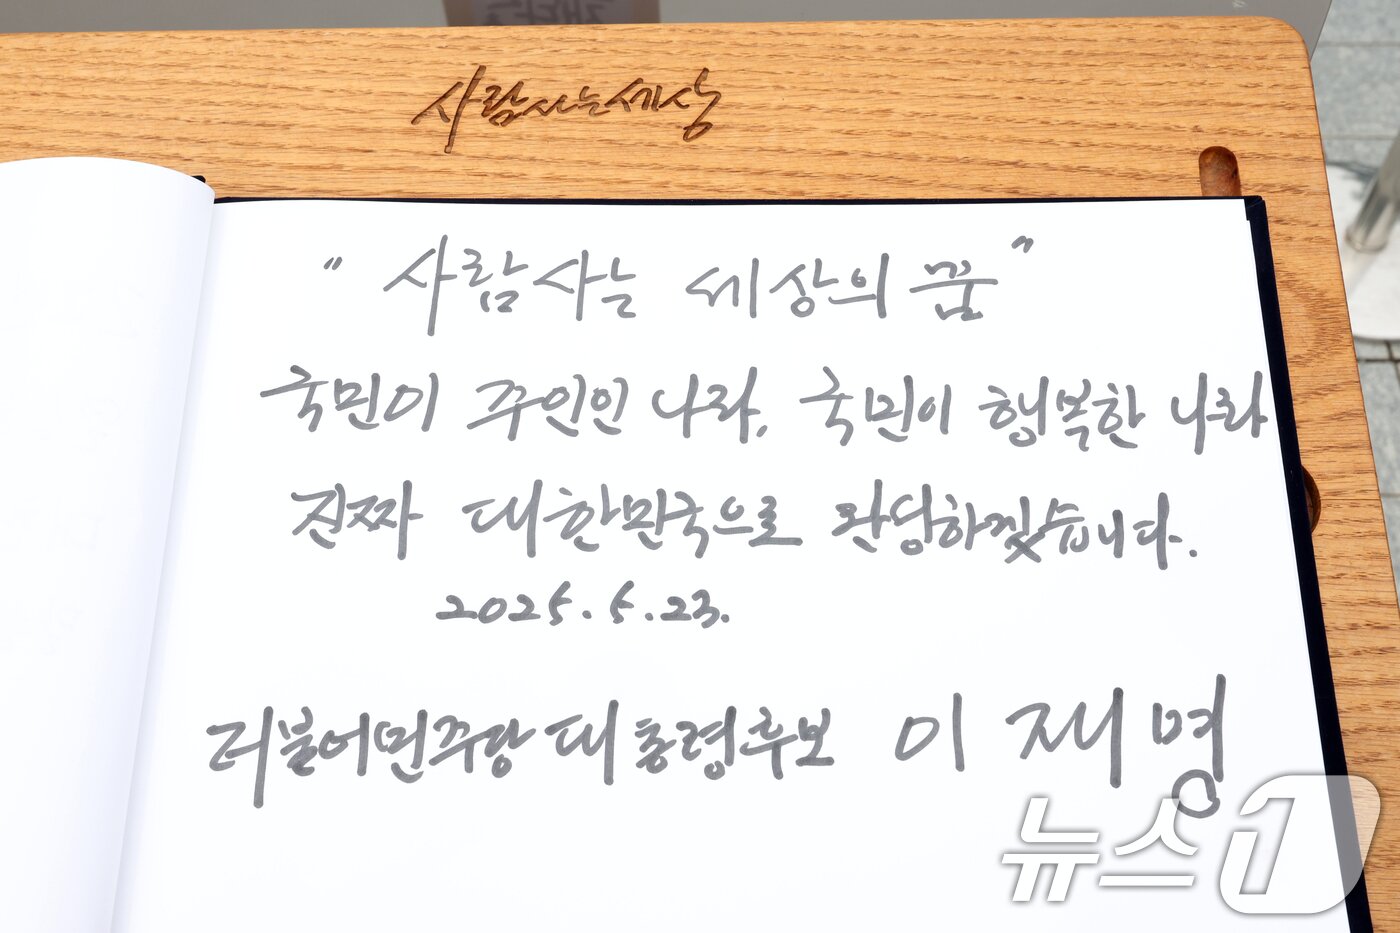 사람사는세상
" 사람사는 세상의 꿈 "
국민이 주인인 나라, 국민이 행복한 나라
진짜 대한민국으로 완성하겠습니다.
2025. 5. 23.
더불어민주당 대통령후보 이재명
뉴스1